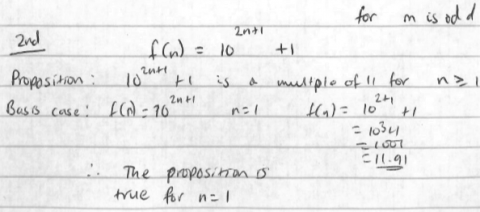 for m is odd
2nd f(n) = 10^2n+1 +1
Proposition : 10^2n+1 +1 is a multiple of 11 for n ≥ 1
Basis case : f(n) = 10^2n+1 n=1 f(n) = 10^2+1 +1
= 10^3+1
= 1001
= 11.91
∴ The proposition is
true for n=1